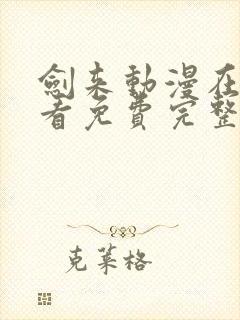 劍来動漫在
看免費完整
克萊格